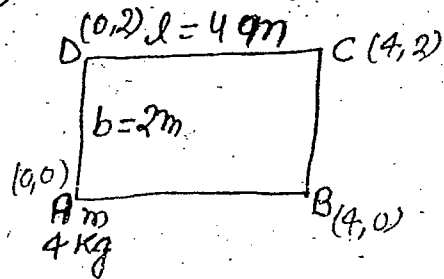 D (0,2) l = 4 m C (4,2)
b=2m
(0,0)
A m B (4,0)
4 Kg